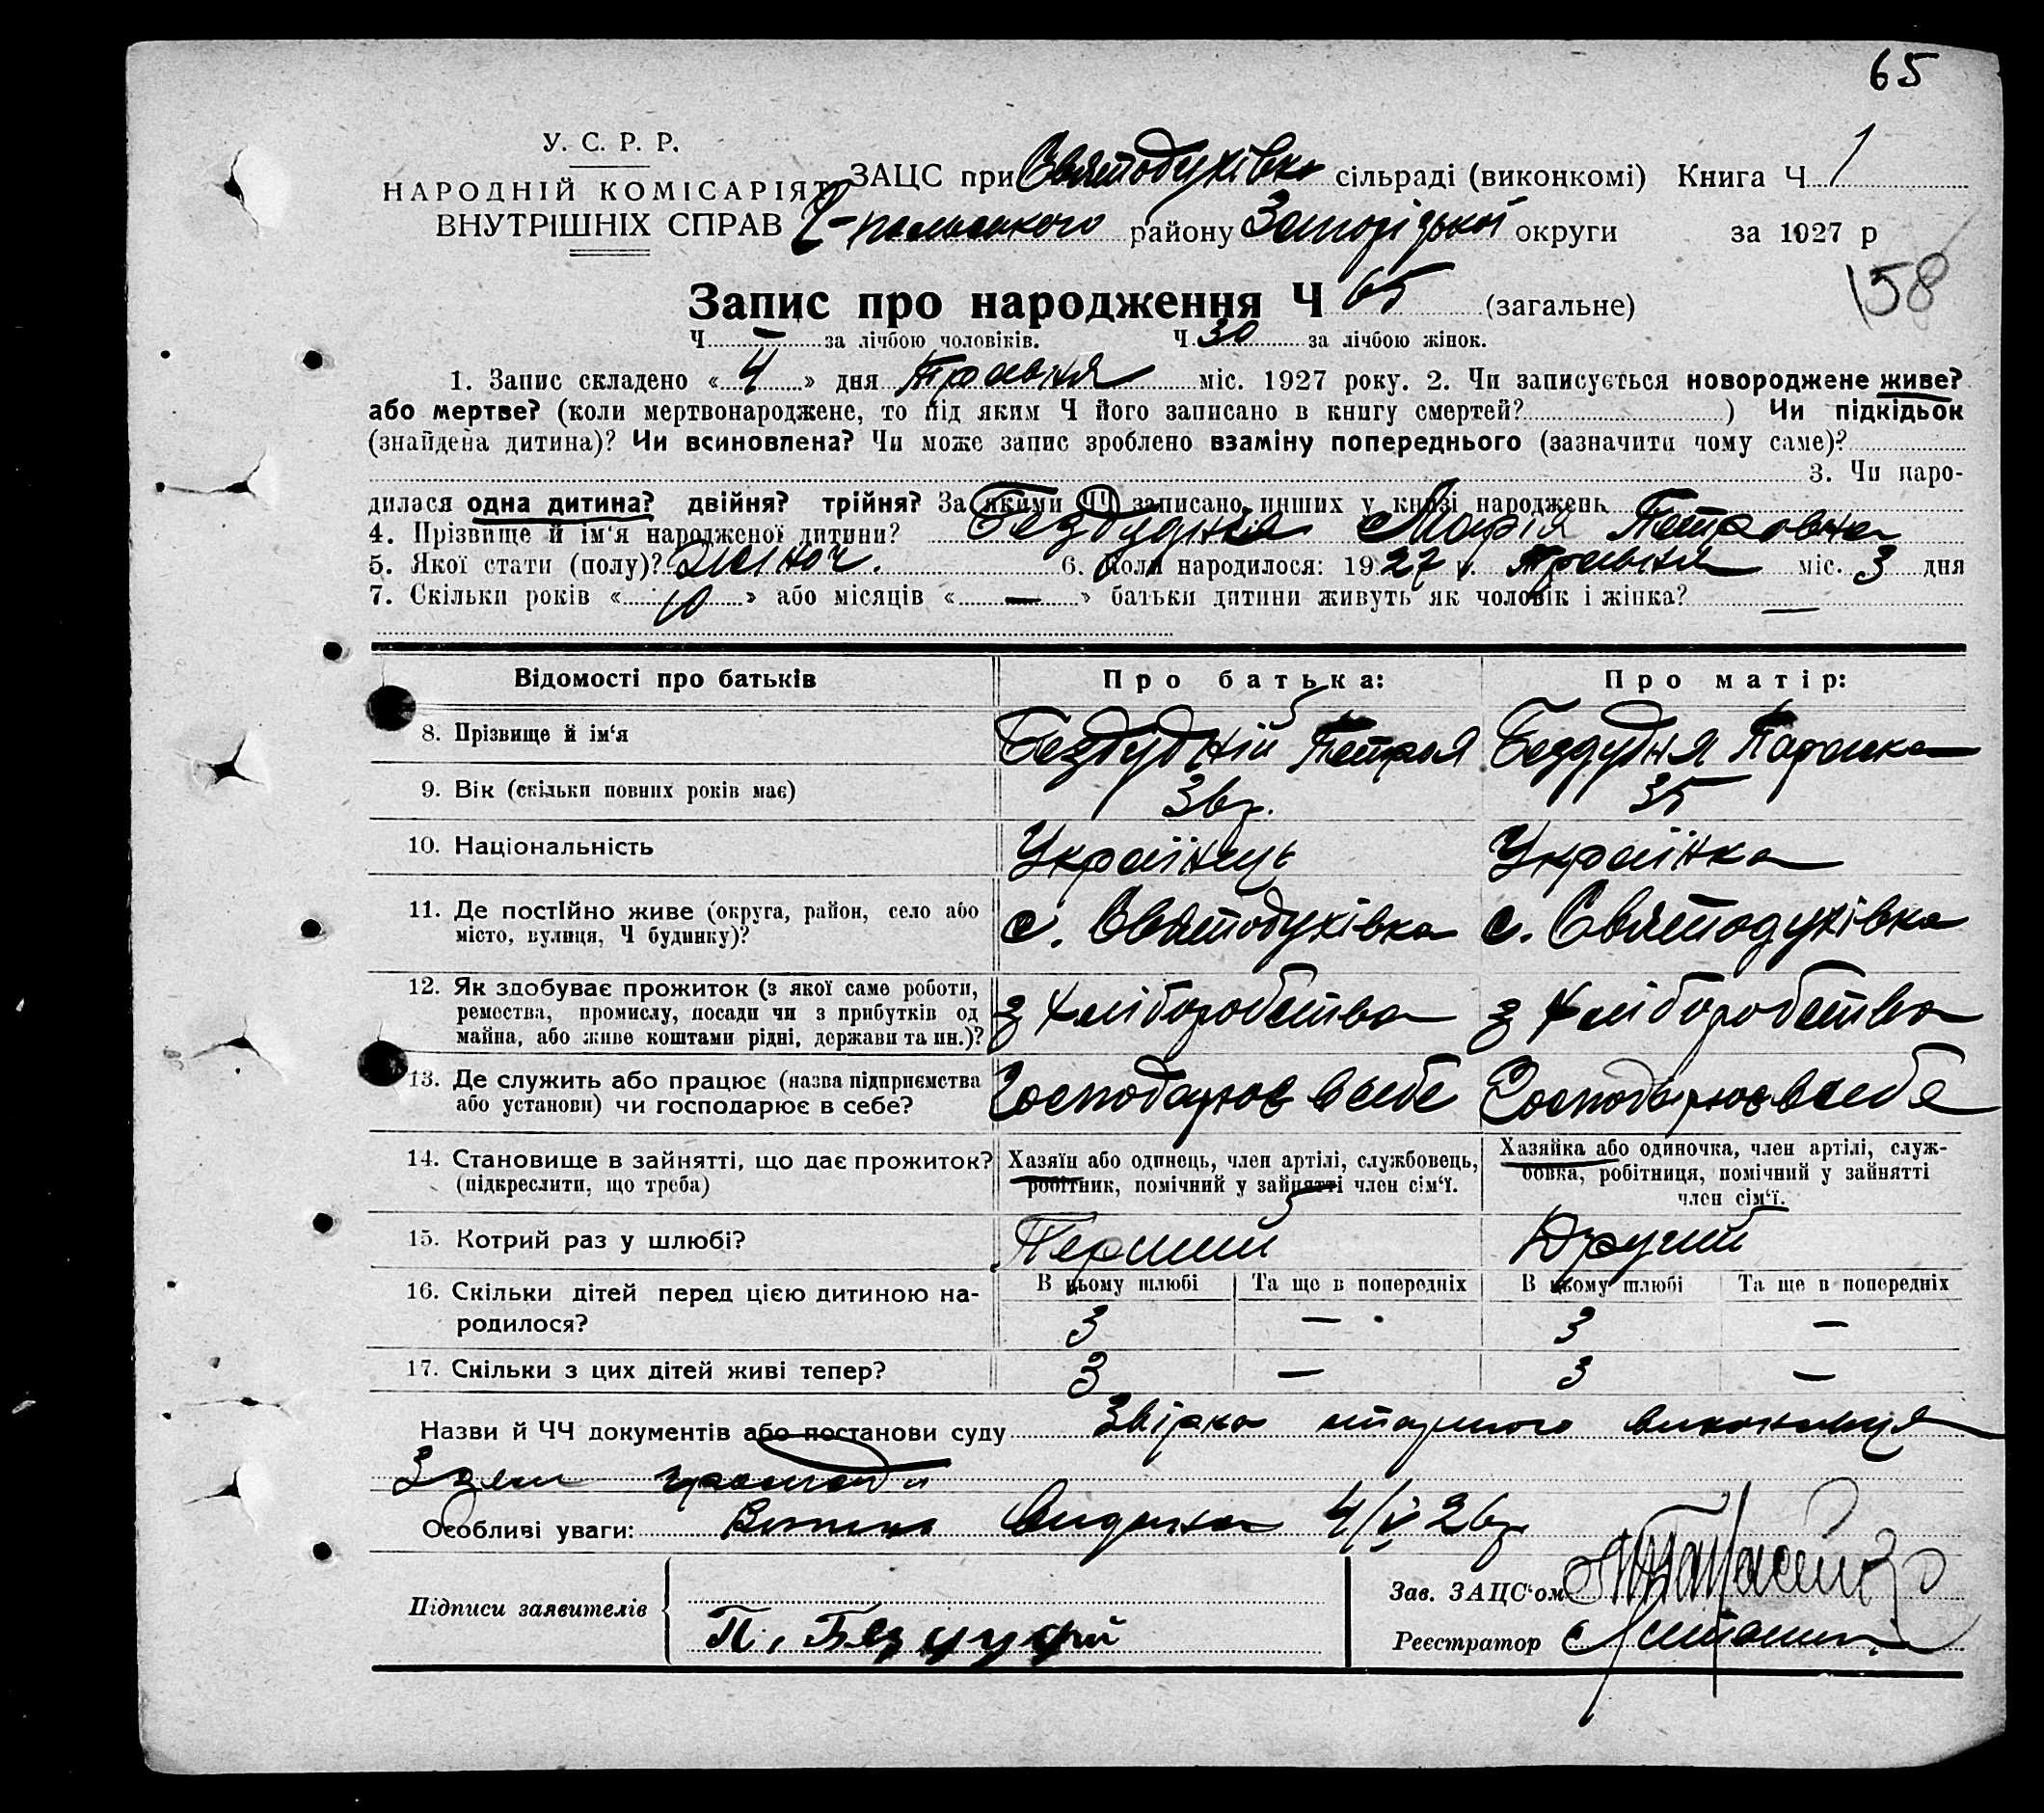 65
У. С. Р. Р.
НАРОДНІЙ КОМІСАРІЯТ
ВНУТРІШНІХ СПРАВ
ЗАЦС при Святодухівка сільраді (виконкомі) Книга Ч 1
району Запорізької округи за 1927 р
158
Запис про народження Ч 65 (загальне)
Ч. — за лічбою чоловіків. Ч. 30 за лічбою жінок.
1. Запис складено «4» дня Травня міс. 1927 року. 2. Чи записується новороджене живе?
або мертве? (коли мертвонароджене, то під яким Ч його записано в книгу смертей? ) Чи підкідьок
(знайдена дитина)? Чи всиновлена? Чи може запис зроблено взаміну попереднього (зазначити чому саме)?
3. Чи наро-
дилася одна дитина? двійня? трійня? За якими ЧЧ записано инших у книзі народжень
4. Прізвище й ім‘я народженої дитини? Бездудня Марія Петровна
5. Якої стати (полу)? Жіноч. 6. Коли народилося: 1927 р. травня міс. 3 дня
7. Скільки років «10» або місяців «—» батьки дитини живуть як чоловік і жінка? —
Відомості про батьків Про батька: Про матір:
8. Прізвище й ім‘я Бездудній Петро Бездудня Параска
9. Вік (скільки повних років має) 36 р. 35
10. Національність Українець Українка
11. Де постійно живе (округа, район, село або
місто, вулиця, Ч будинку)? с. Святодухівка с. Святодухівка
12. Як здобуває прожиток (з якої саме роботи,
ремества, промислу, посади чи з прибутків од
майна, або живе коштами рідні, держави та ин.)? з Хліборобства з Хліборобства
13. Де служить або працює (назва підприємства
або установи) чи господарює в себе? Господарює в себе Господарює в себе
14. Становище в зайнятті, що дає прожиток?
(підкреслити, що треба)
Хазяїн або одинець, член артілі, службовець,
робітник, помічний у зайнятті член сім‘ї.
Хазяйка або одиночка, член артілі, служ-
бовка, робітниця, помічний у зайнятті
член сім‘ї.
15. Котрий раз у шлюбі? Перший Другий
В цьому шлюбі Та ще в попередніх В цьому шлюбі Та ще в попередніх
16. Скільки дітей перед цією дитиною на-
родилося? 3 — 3 —
17. Скільки з цих дітей живі тепер? 3 — 3 —
Назви й ЧЧ документів або постанови суду
громади
Особливі уваги: видана 4/V 26р
Підписи заявителів
П. Бездудній
Зав. ЗАЦС‘ом
Реєстратор